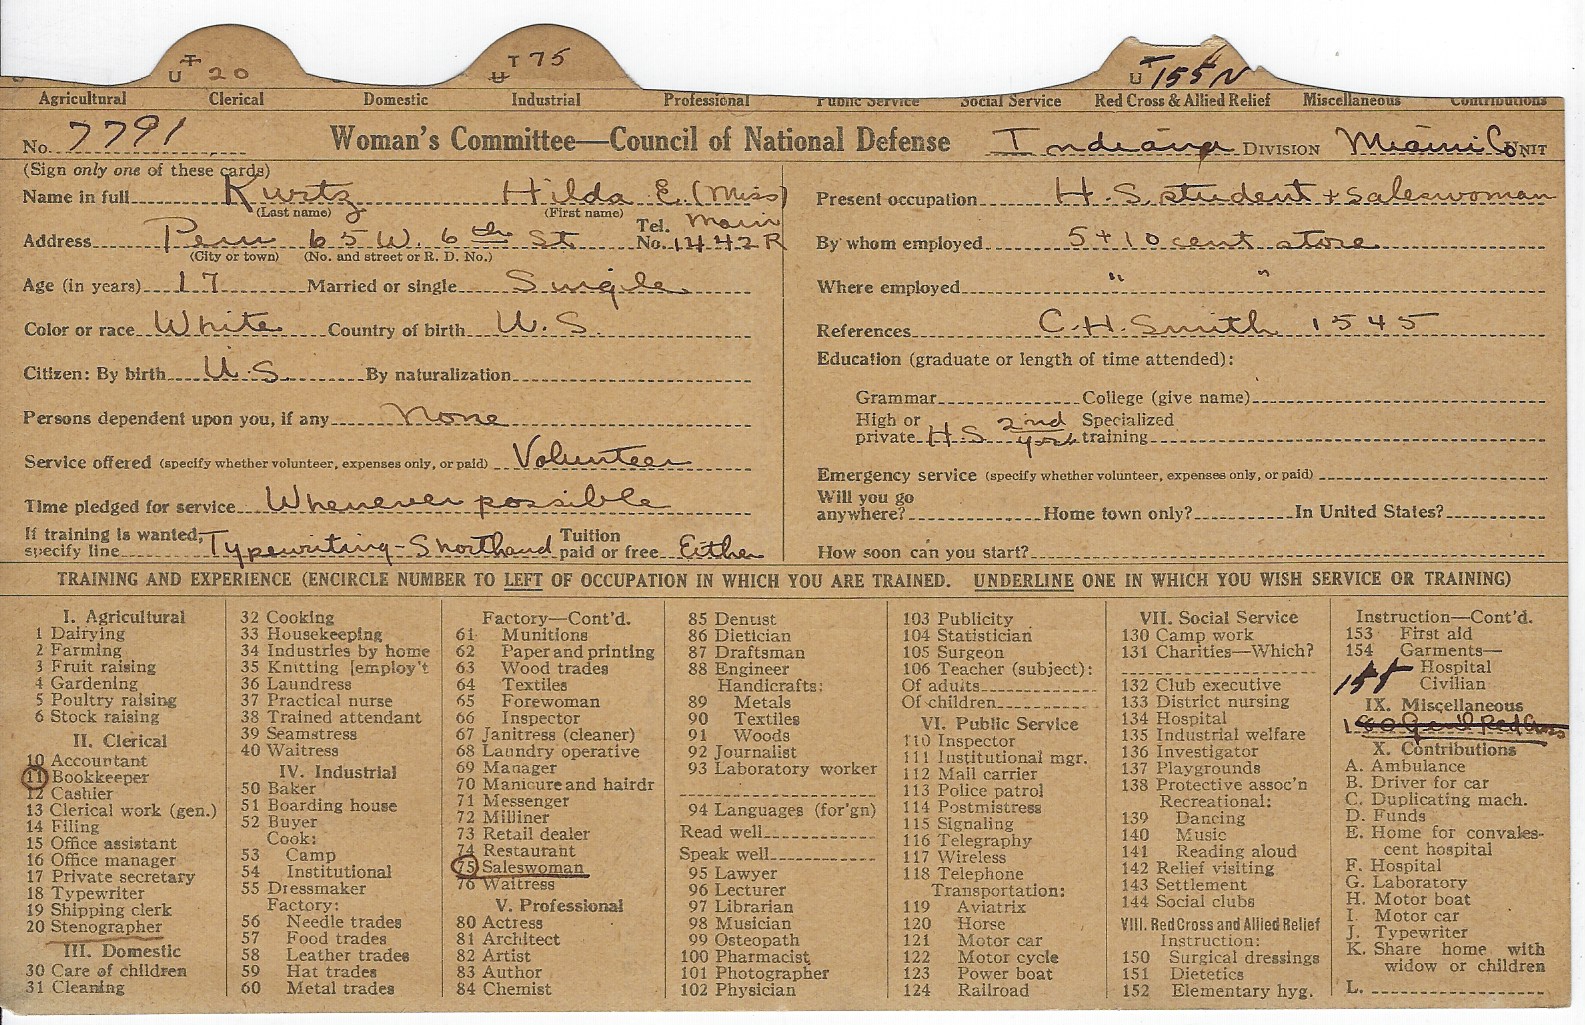 T U 20
T U 75
T U 155 N
Agricultural Clerical Domestic Industrial Professional Public Service Social Service Red Cross & Allied Relief Miscellaneous Contributions
No. 7791 Woman's Committee—Council of National Defense Indiana DIVISION Miami Co. UNIT
(Sign only one of these cards)
Name in full Kurtz Hilda E. (Miss)
(Last name) (First name)
Address Peru 65 W. 6th St Tel. No. Main 1442R
(City or town) (No. and street or R. D. No.)
Age (in years) 17 Married or single Single
Color or race White Country of birth U.S.
Citizen: By birth U.S. By naturalization
Persons dependent upon you, if any None
Service offered (specify whether volunteer, expenses only, or paid) Volunteer
Time pledged for service Whenever possible
If training is wanted, specify line Typewriting - Shorthand Tuition paid or free Either
Present occupation H.S. student + saleswoman
By whom employed 5 + 10 cent store
Where employed " "
References C.H. Smith 1545
Education (graduate or length of time attended):
Grammar College (give name)
High or private H S 2nd Specialized training
Emergency service (specify whether volunteer, expenses only, or paid)
Will you go anywhere? Home town only? In United States?
How soon can you start?
TRAINING AND EXPERIENCE (ENCIRCLE NUMBER TO LEFT OF OCCUPATION IN WHICH YOU ARE TRAINED. UNDERLINE ONE IN WHICH YOU WISH SERVICE OR TRAINING)
I. Agricultural
1 Dairying
2 Farming
3 Fruit raising
4 Gardening
5 Poultry raising
6 Stock raising
II. Clerical
10 Accountant
11 Bookkeeper
12 Cashier
13 Clerical work (gen.)
14 Filing
15 Office assistant
16 Office manager
17 Private secretary
18 Typewriter
19 Shipping clerk
20 Stenographer
III. Domestic
30 Care of children
31 Cleaning
32 Cooking
33 Housekeeping
34 Industries by home
35 Knitting [employ't
36 Laundress
37 Practical nurse
38 Trained attendant
39 Seamstress
40 Waitress
IV. Industrial
50 Baker
51 Boarding house
52 Buyer
Cook:
53 Camp
54 Institutional
55 Dressmaker
Factory:
56 Needle trades
57 Food trades
58 Leather trades
59 Hat trades
60 Metal trades
Factory—Cont'd.
61 Munitions
62 Paper and printing
63 Wood trades
64 Textiles
65 Forewoman
66 Inspector
67 Janitress (cleaner)
68 Laundry operative
69 Manager
70 Manicure and hairdr
71 Messenger
72 Milliner
73 Retail dealer
74 Restaurant
75 Saleswoman
76 Waitress
V. Professional
80 Actress
81 Architect
82 Artist
83 Author
84 Chemist
85 Dentist
86 Dietician
87 Draftsman
88 Engineer
Handicrafts:
89 Metals
90 Textiles
91 Woods
92 Journalist
93 Laboratory worker
94 Languages (for'gn)
Read well
Speak well
95 Lawyer
96 Lecturer
97 Librarian
98 Musician
99 Osteopath
100 Pharmacist
101 Photographer
102 Physician
103 Publicity
104 Statistician
105 Surgeon
106 Teacher (subject):
Of adults
Of children
VI. Public Service
110 Inspector
111 Institutional mgr.
112 Mail carrier
113 Police patrol
114 Postmistress
115 Signaling
116 Telegraphy
117 Wireless
118 Telephone
Transportation:
119 Aviatrix
120 Horse
121 Motor car
122 Motor cycle
123 Power boat
124 Railroad
VII. Social Service
130 Camp work
131 Charities—Which?
132 Club executive
133 District nursing
134 Hospital
135 Industrial welfare
136 Investigator
137 Playgrounds
138 Protective assoc'n
Recreational:
139 Dancing
140 Music
141 Reading aloud
142 Relief visiting
143 Settlement
144 Social clubs
VIII. Red Cross and Allied Relief
Instruction:
150 Surgical dressings
151 Dietetics
152 Elementary hyg.
Instruction—Cont'd.
153 First aid
154 Garments—
Hospital
155 Civilian
IX. Miscellaneous
180 Gen'l Red Cross
X. Contributions
A. Ambulance
B. Driver for car
C. Duplicating mach.
D. Funds
E. Home for convales-
cent hospital
F. Hospital
G. Laboratory
H. Motor boat
I. Motor car
J. Typewriter
K. Share home with
widow or children
L.